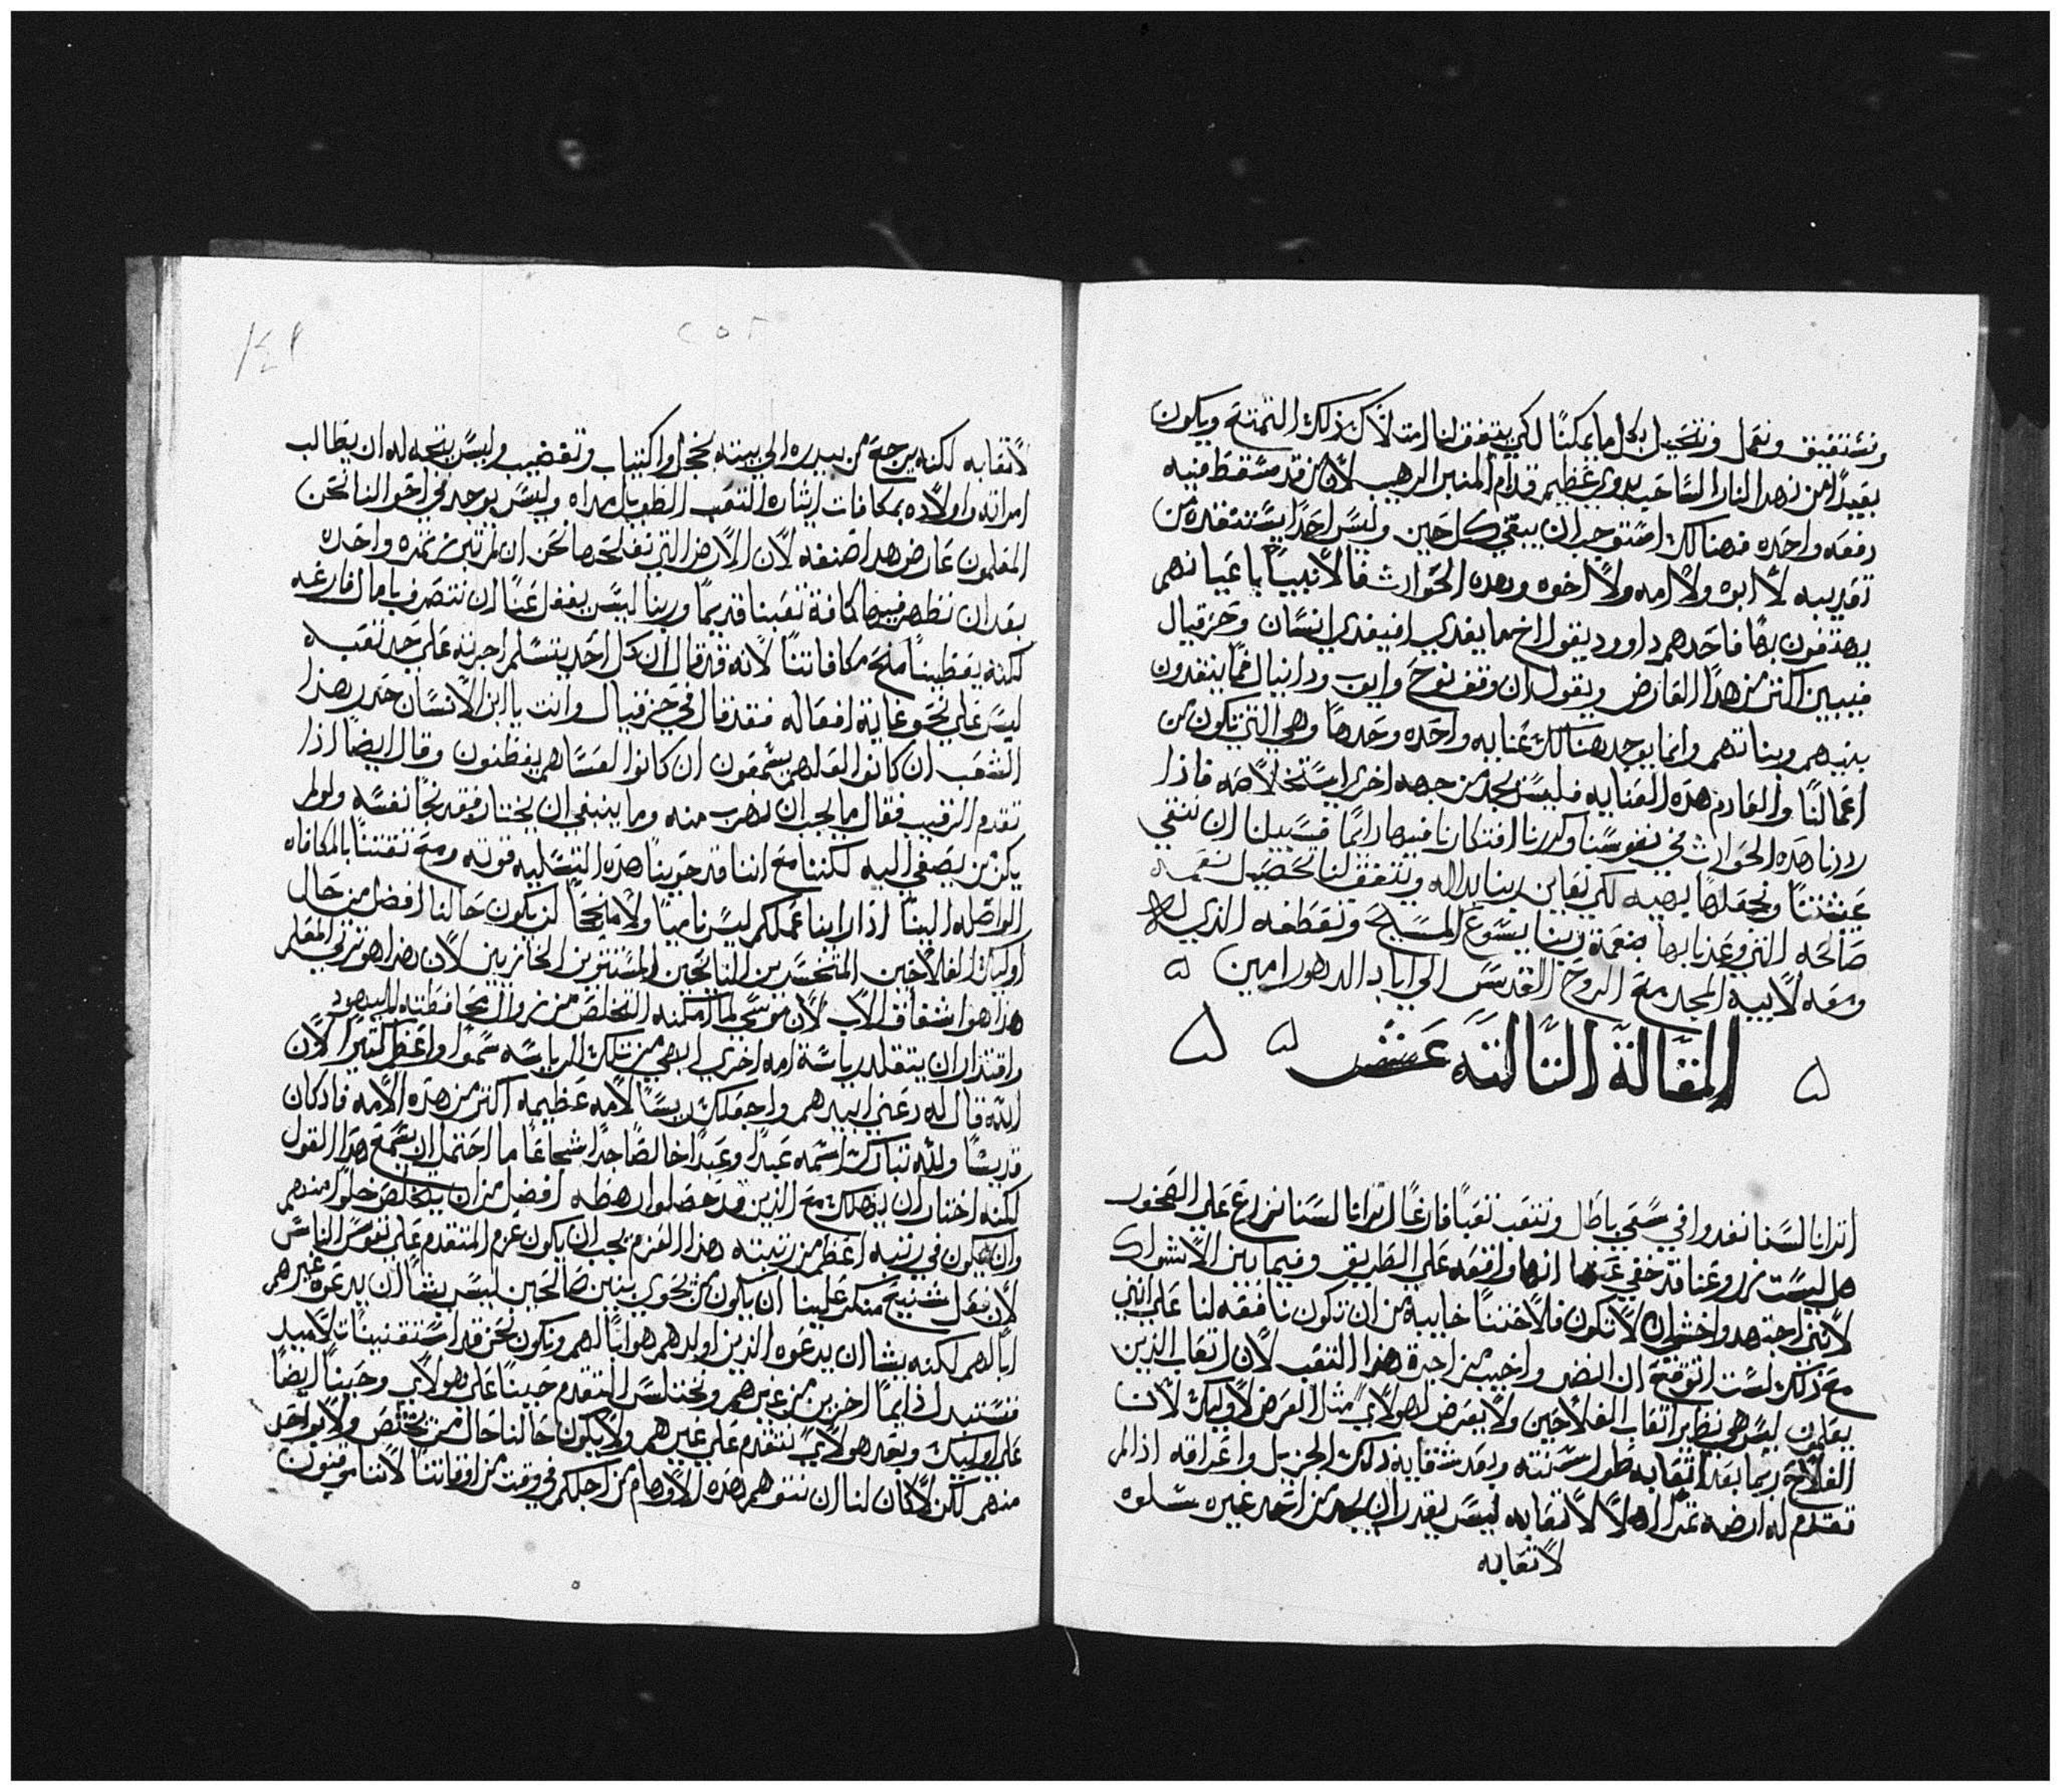 ونستفيق ونعمل ونتحيل بكل ما يمكننا لكي يتفق لنا امتلاك ذلك التمتع ويكون
بعيدًا من نهر النار الساحب بدوي عظيم قدام المنبر الرهيب لان من قد سقط فيه
دفعه واحده فهنالك استوجب ان يبقي كل حين وليس احدًا يستنقذه من
تعذيبه لا ابوه ولا امه ولا اخوه وهذه الحوادث فالانبياء باعيانهم
يهتفون بها فاحدهم داوود يقول اخ ما يفدي افيفدي انسان وحزقيال
فيبين اكثر من هذا العارض ويقول ان وقف نوح وايوب ودانيال فما ينقذون
بنيهم وبناتهم وانما يوجد هنالك عنايه واحده وحدها وهي التي تكون من
اعمالنا والعادم هذه العنايه فليس يجد من جهه اخري استخلاصه فاذا
رددنا هذه الحوادث في نفوسنا وكررنا افتكارنا فيها دايمًا فسبيلنا ان ننقي
عيشتنا ونجعلها بهيه لكي نعاين ربنا بداله ويتفق لنا تحصيل نعمه
صالحه التي وعدنا بها بنعمة ربنا يسوع المسيح وتعطفه الذي له
ومعه لابيه المجد مع الروح القدس الي اباد الدهور امين
المقالة الثالثه عشر
اترانا لسنا نغدوا في سعي باطل ونتعب تعبًا فارغًا اترانا لسنا نزارع علي الصخور
هل ليست زروعنا قد خفي عنها انها واقعه علي الطريق وفيما بين الاشواك
لانني اجتهد واخشي ان لا تكون فلاحتنا خايبة من ان تكون نافعه لنا علي انني
مع ذلك لست اتوقع ان انضر واخيب من اجرة هذا التعب لان اتعاب الذين
يعلمون ليس هي نظير اتعاب الفلاحين ولا يعرض لهولاي مثل العرض لاوليك لان
الفلاح ربما بعد اتعابه طول سنته وبعد شقايه ذلك الجزيل واعراقه اذا لم
تقدم له ارضه ثمرًا اهلا لاتعابه ليس يقدر ان يجد من احد غيره سلوه
لاتعابه
٢٥٢
لاتعابه لكنه يرجع من بيدره الي بيته بخجل واكتياب وتعضيب وليس يتجه له ان يطالب
امراته واولاده بمكافات ايثاره التعب الطويل مداه وليس يوجد في احوالنا نحن
المعلمون عارض هذا صنفه لان الارض التي نفلحها نحن ان لم تبرز ثمره واحده
بعد ان نظهر فيها كافة تعبنا قديمًا وربنا ليس يغفل عنا ان نتصرف بامال فارغه
لكنه يعطينا ملح مكافاتنا لانه قد قال ان كل احد يتسلم اجرته علي حد تعبه
ليس علي نحو غاية افعاله فقد قال في حزقيال وانت يا ابن الانسان حذر هذا
الشعب ان كانوا لعلهم يسمعون ان كانوا لعساهم يفطنون وقال ايضًا اذا
تقدم الرقيب فقال ما يجب ان نهرب منه وما ينبغي ان يختار فقد نجا نفسه ولو لم
يكن من يصغي اليه لكننا مع اننا قد حوينا هذه التسليه قوته ومع ثقتنا بالمكافاه
الواصله الينا اذا راينا عملكم ليس ناميًا ولا منجحًا لن يكون حالنا افضل من حال
اوليك الفلاحين المتحسرين النايحين المستترين الحازنين لان هذا هو ترثي المعلم
هذا هو اشفاق الاب لان موسي لما امكنه التخلص من زوال محافظته لليهود
واقتدار ان يتقلد رياسة امه اخري ابهي من تلك الرياسه سموًا واعظم كثيرًا لان
الله قال له دعني ابيدهم واجعلك ريسًا لامه عظيمه اكثر من هذه الامه فاذ كان
قديسًا ولله تبارك اسمه عبدًا وعبدًا خالصًا جدًا شجاعًا ما احتمل ان يسمع هذا القول
لكنه اختار ان يهلك مع الذين قد حصلوا رهطه افضل من ان يتخلص خلوًا منهم
وان يكون في رتبه اعظم من رتبته هذا العزم يجب ان يكون عزم المتقدم علي نفوس الناس
لان فعل شنيع منكر علينا ان يكون من يحوي بنين صالحين ليس يشا ان يدعوه غيرهم
ابا لهم لكنه يشا ان يدعوه الذين اولدهم هو ابا لهم ونكون نحن قد استقنينا تلاميذ
فنستبدل دايمًا اخرين من غيرهم ونختلس التقدم حينًا علي هولاي وحينًا ايضًا
علي اوليك وبعد هولاي نتقدم علي غيرهم ولا يكون حالنا حال من يختص ولا بواحد
منهم لكن لا كان لنا ان نتوهم هذه الاوهام من اجلكم في وقت من اوقاتنا لاننا موقنون